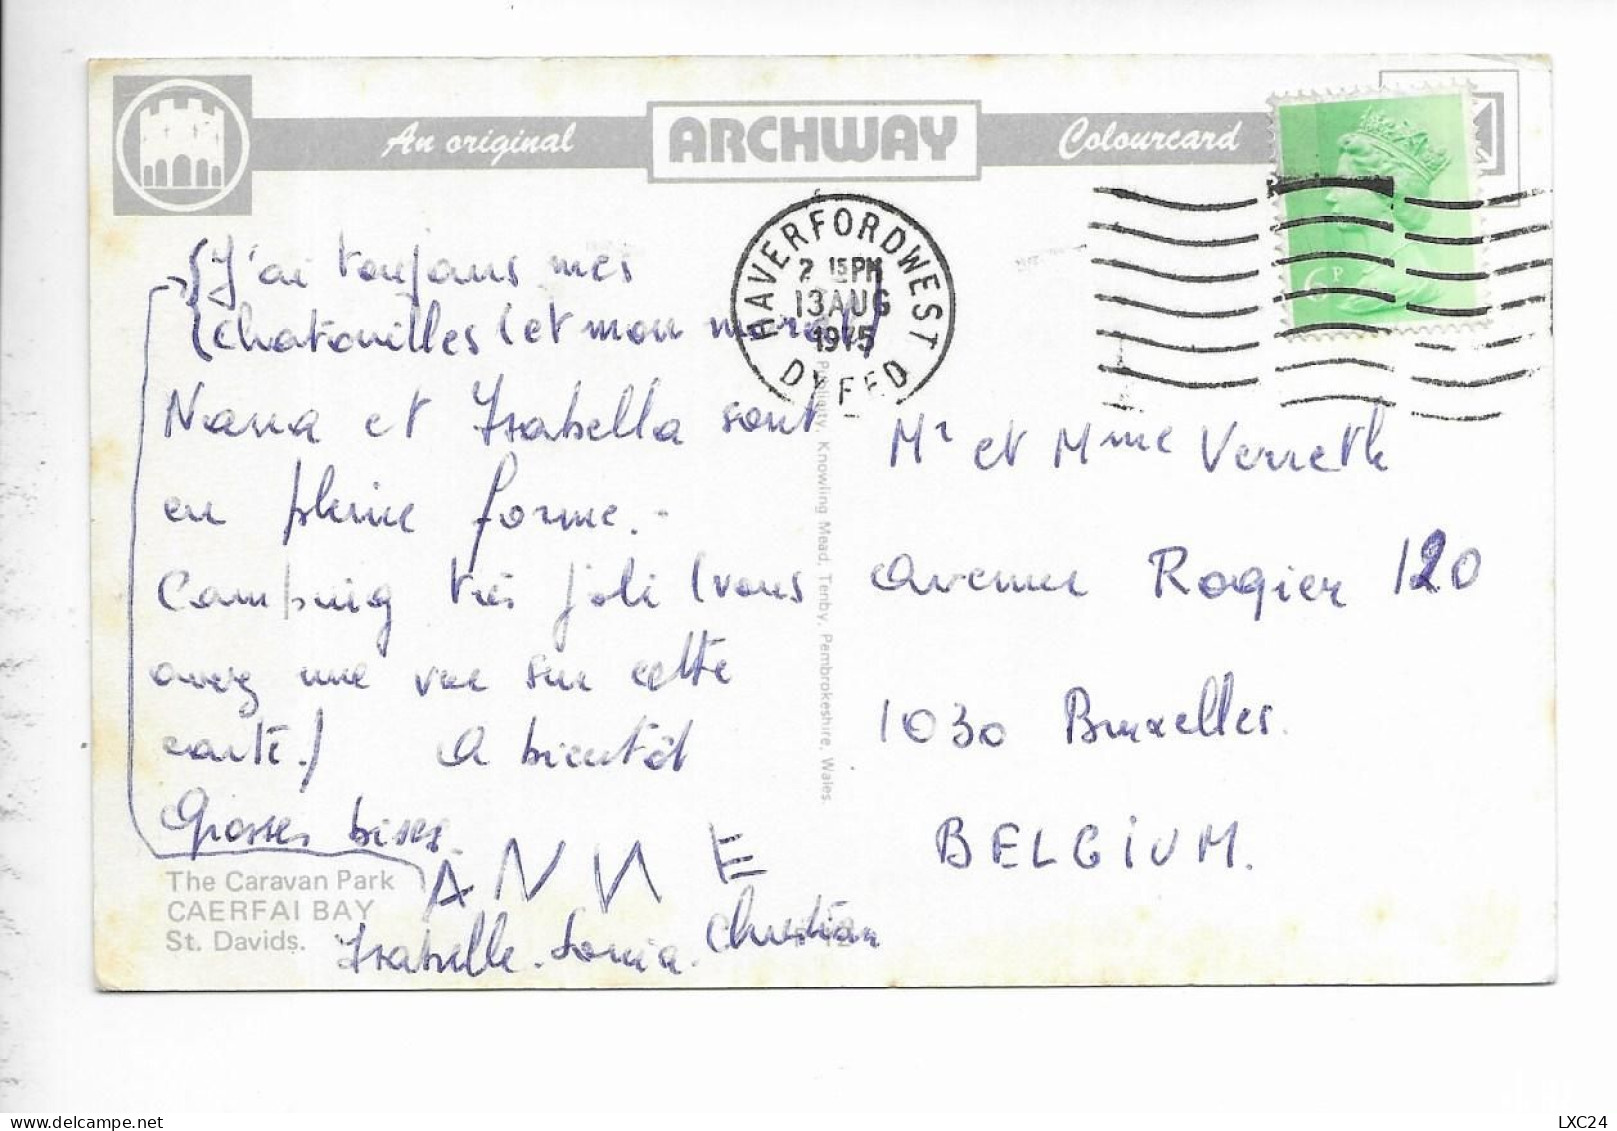 An original ARCHWAY Colourcard
HAVERFORDWEST
2 15PM
13 AUG
1975
DYFED
6P
J'ai toujours mes
chatouilles (et mon moral)
Nana et Isabella sont
en pleine forme.-
Camping très joli (vous
avez une vue sur cette
carte.) A bientôt
Grosses bises.
ANNE
Isabelle. Sonia. Christian
The Caravan Park
CAERFAI BAY
St. Davids.
Publicity, Knowling Mead, Tenby, Pembrokeshire, Wales.
Mr et Mme Verreth
avenue Rogier 120
1030 Bruxelles.
BELGIUM.
LXC24